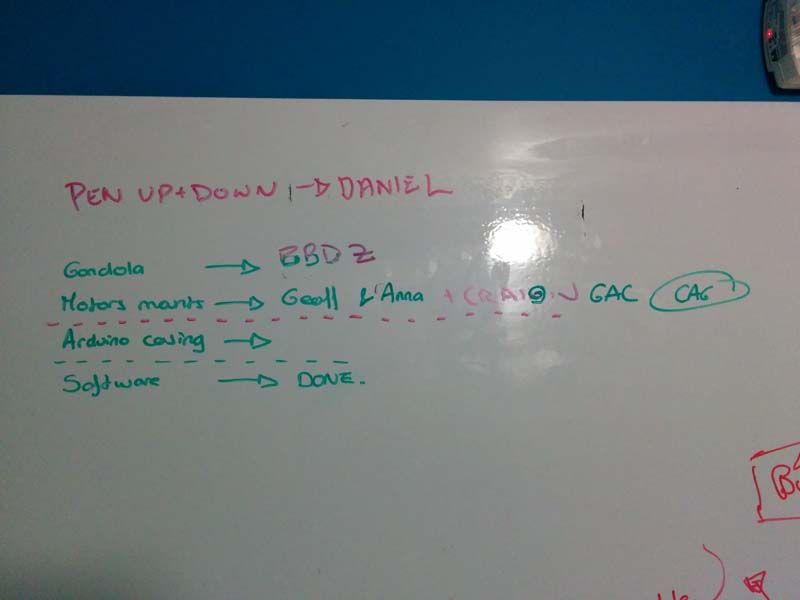 PEN UP + DOWN → DANIEL
Gondola → BBDZ
Motors mants → Geoff & Anna + CRAIOIN GAC CAG
Arduino casing →
Software → DONE.